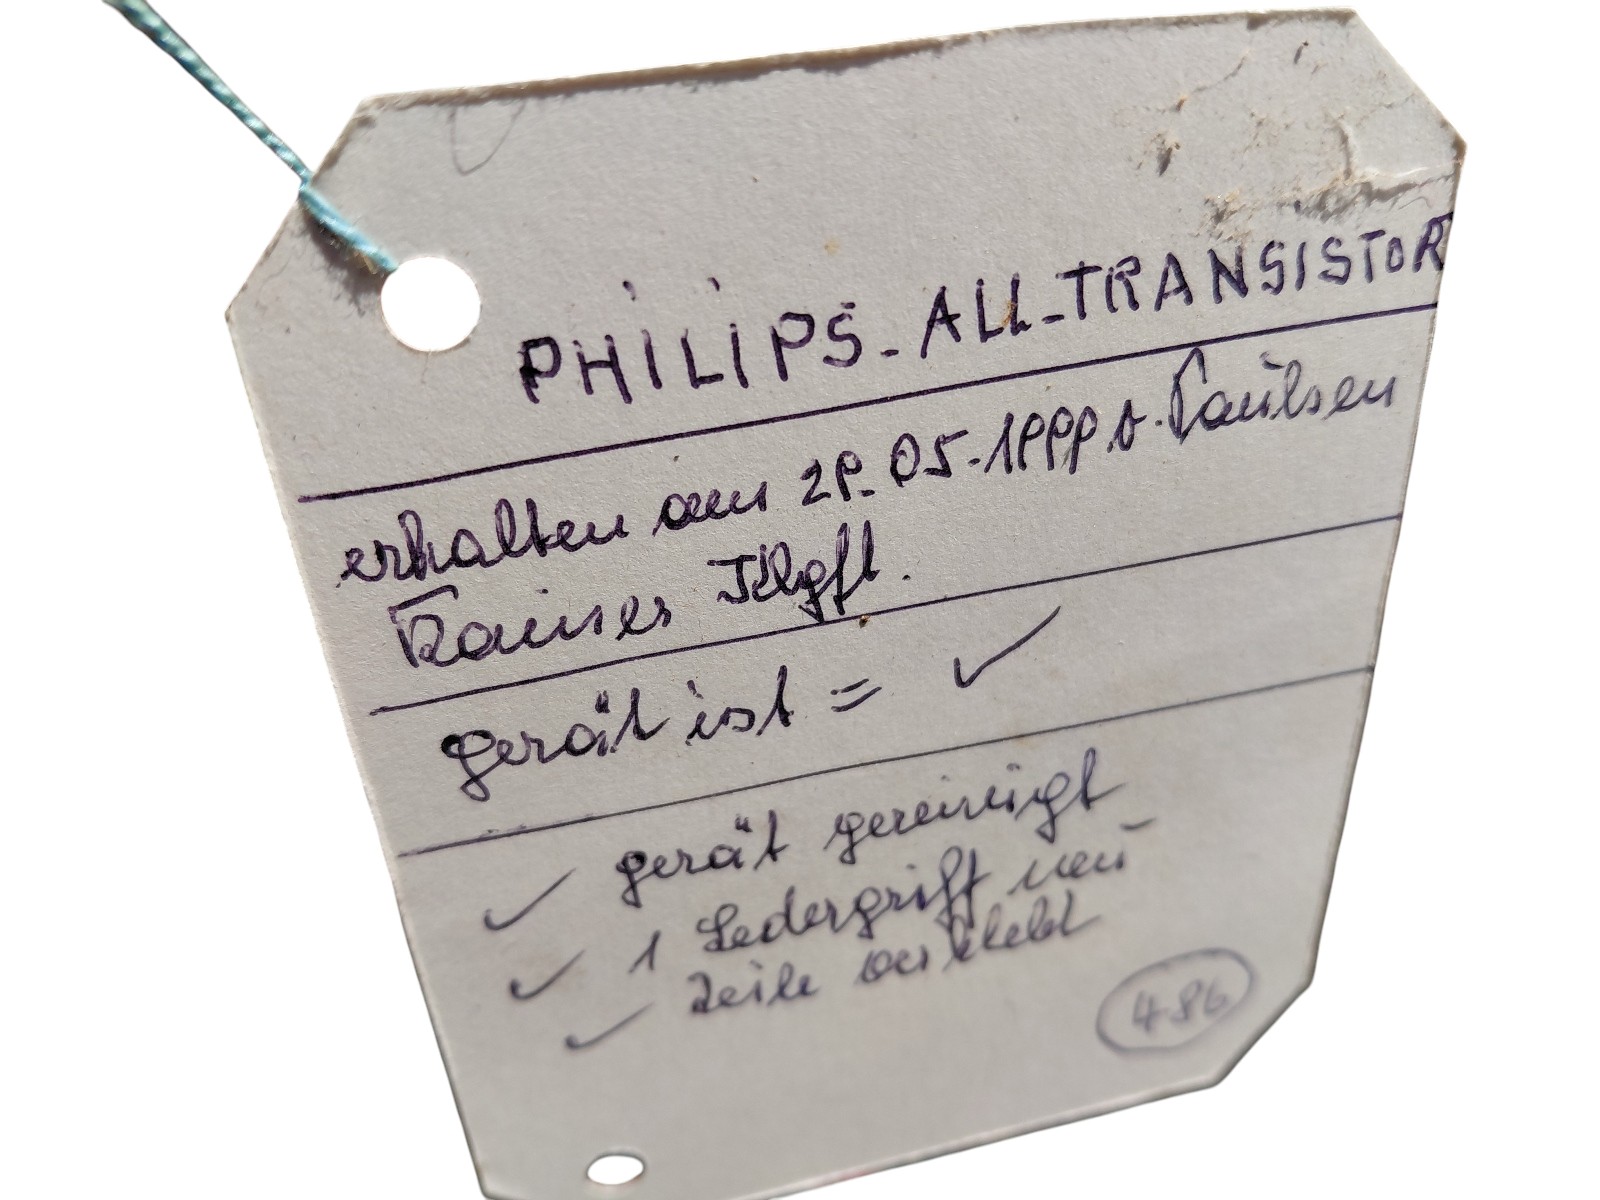 PHILIPS-ALL-TRANSISTOR
erhalten am 29.05.1999 v. Paulsen
Rainer
gerät ist = ✓
✓ gerät gereinigt
✓ 1 Ledergriff neu
✓ Teile
486